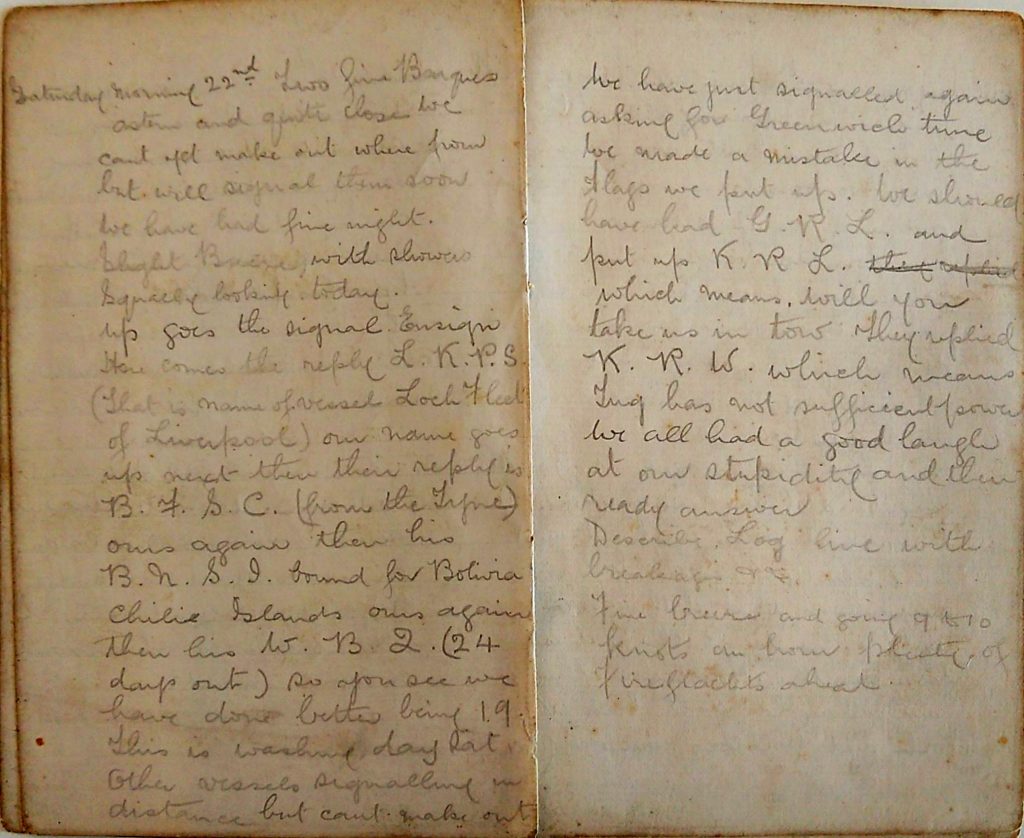 Saturday Morning 22nd Two fine Barques
astern and quite close We
cant yet make out where from
but will signal them soon
We have had fine night.
Slight Breeze, with showers
Squally looking. today.
up goes the signal Ensign
Here comes the reply L. K. P. S
(That is name of vessel Loch Fleet
of Liverpool) our name goes
up next then their reply is
B. F. S. C. (from the Tyne)
ours again then his
B. N. S. I. bound for Bolivia
Chilie Islands ours again
then his W. B. Q. (24
days out) so you see we
have done better being 19.
This is washing day Sat
Other vessels signalling in
distance but cant make out
We have just signalled again
asking for Greenwich time
We made a mistake in the
Flags we put up. We should
have had G. R. L. and
put up K. R. L. they replied
which means, will you
take us in tow They replied
K. R. W. which means
Tug has not sufficient power
We all had a good laugh
at our stupidity and their
ready answer
Describe Log line with
breakage &c.
Fine breeze and going 9 to 10
knots an hour plenty of
ahead